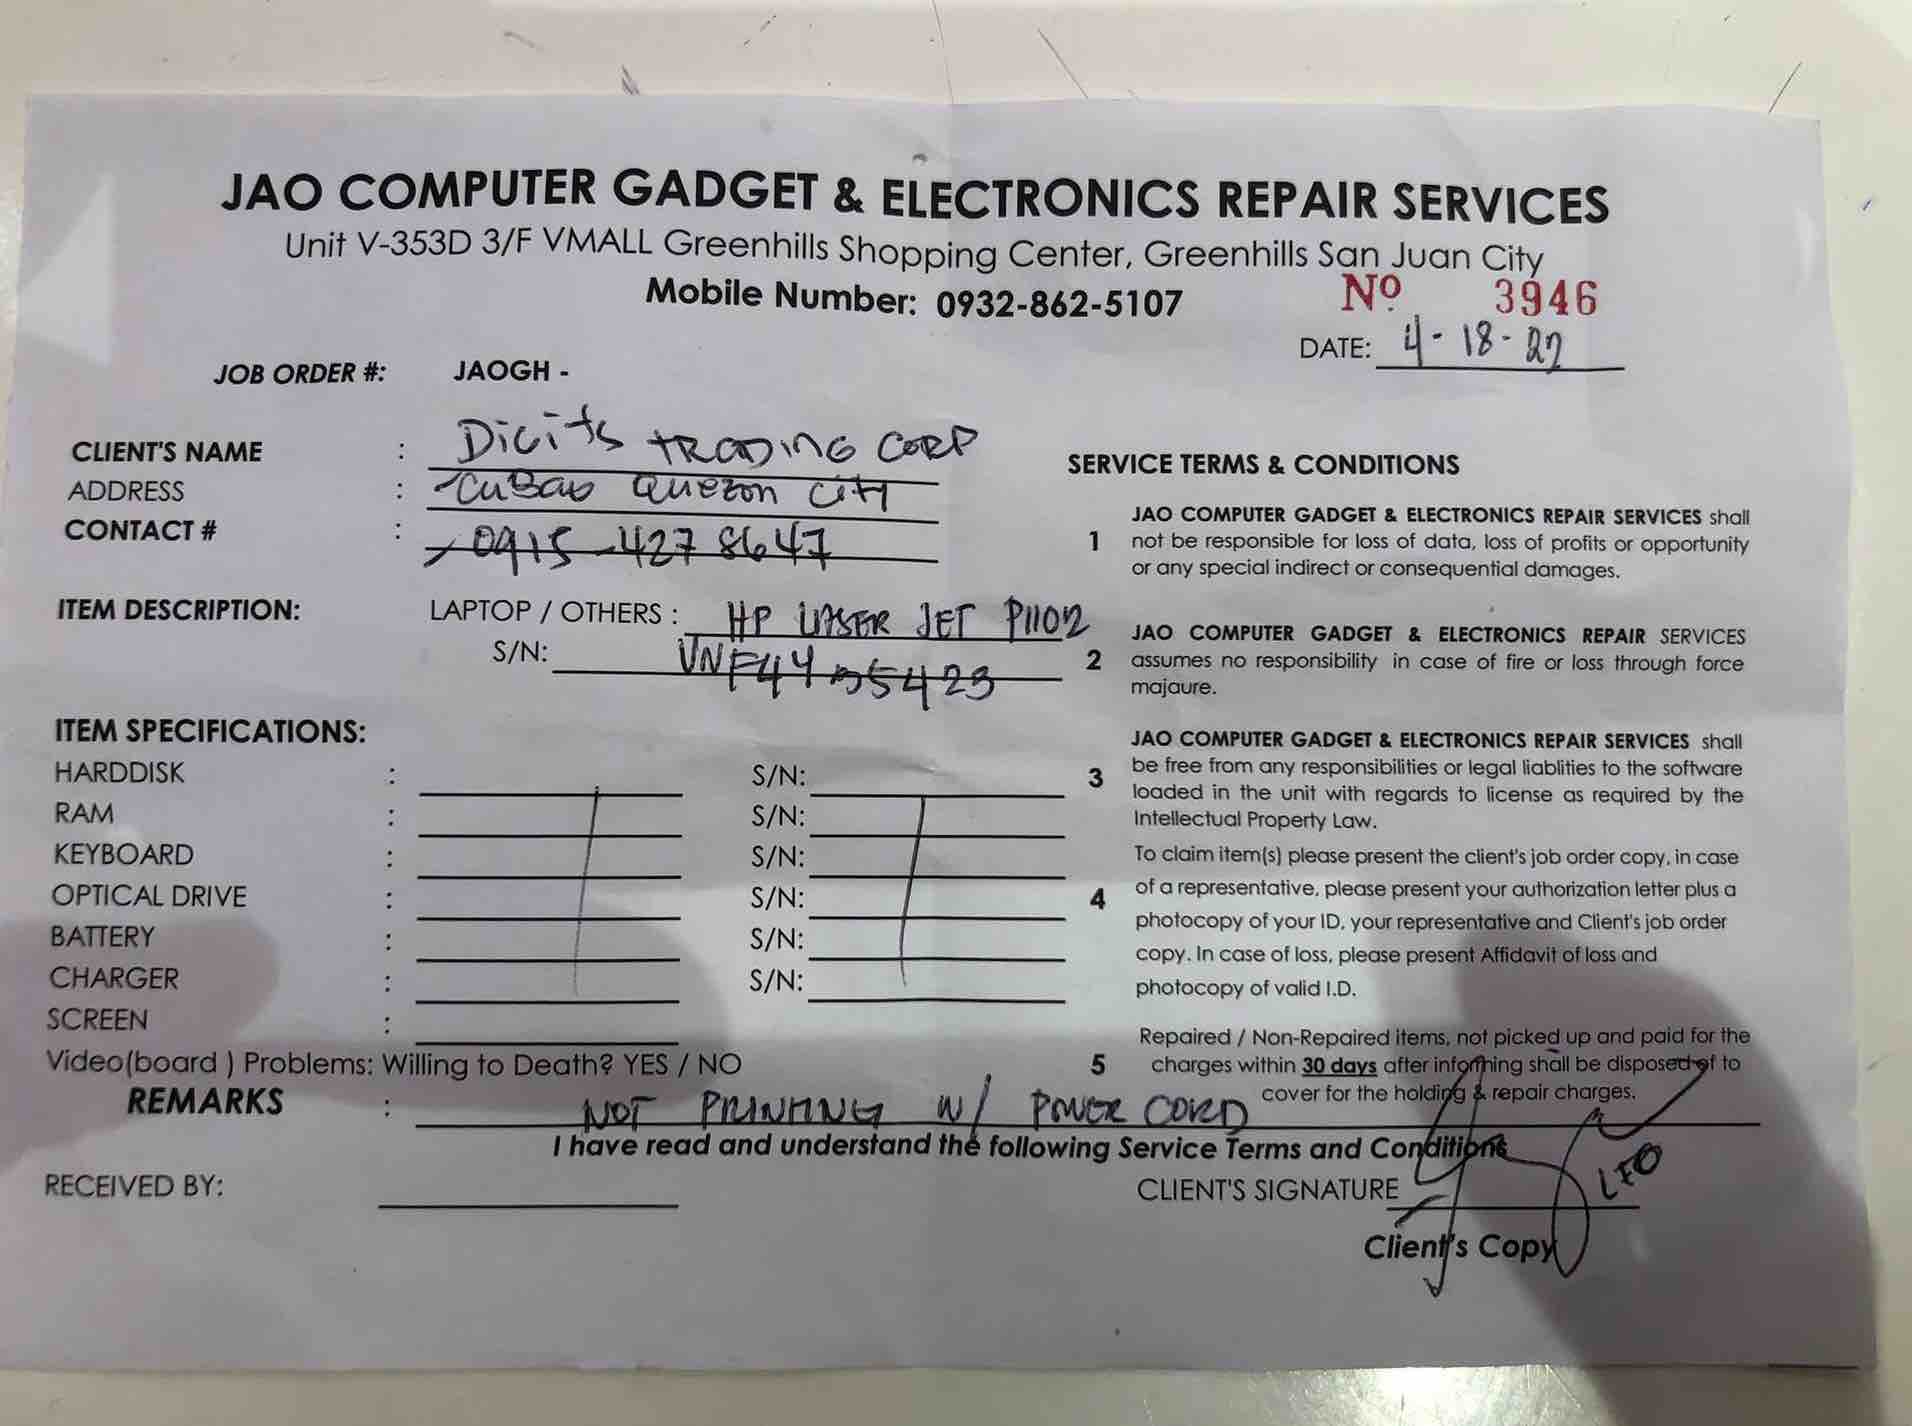 JAO COMPUTER GADGET & ELECTRONICS REPAIR SERVICES
Unit V-353D 3/F VMALL Greenhills Shopping Center, Greenhills San Juan City
Mobile Number: 0932-862-5107
Nº 3946
DATE: 4-18-22
JOB ORDER #: JAOGH -
CLIENT'S NAME : Digits TRADING CORP
ADDRESS : CUBAO QUEZON CITY
CONTACT # : 0915-427 8647
ITEM DESCRIPTION: LAPTOP / OTHERS : HP LASER JET P1102
S/N: VNF4435423
ITEM SPECIFICATIONS:
HARDDISK : S/N:
RAM : S/N:
KEYBOARD : S/N:
OPTICAL DRIVE : S/N:
BATTERY : S/N:
CHARGER : S/N:
SCREEN :
Video(board ) Problems: Willing to Death? YES / NO
REMARKS : NOT PRINTING W/ POWER CORD
SERVICE TERMS & CONDITIONS
1 JAO COMPUTER GADGET & ELECTRONICS REPAIR SERVICES shall
not be responsible for loss of data, loss of profits or opportunity
or any special indirect or consequential damages.
2 JAO COMPUTER GADGET & ELECTRONICS REPAIR SERVICES
assumes no responsibility in case of fire or loss through force
majaure.
3 JAO COMPUTER GADGET & ELECTRONICS REPAIR SERVICES shall
be free from any responsibilities or legal liablities to the software
loaded in the unit with regards to license as required by the
Intellectual Property Law.
4 To claim item(s) please present the client's job order copy, in case
of a representative, please present your authorization letter plus a
photocopy of your ID, your representative and Client's job order
copy. In case of loss, please present Affidavit of loss and
photocopy of valid I.D.
5 Repaired / Non-Repaired items, not picked up and paid for the
charges within 30 days after informing shall be disposed of to
cover for the holding & repair charges.
I have read and understand the following Service Terms and Conditions
RECEIVED BY:
CLIENT'S SIGNATURE LEO
Client's Copy